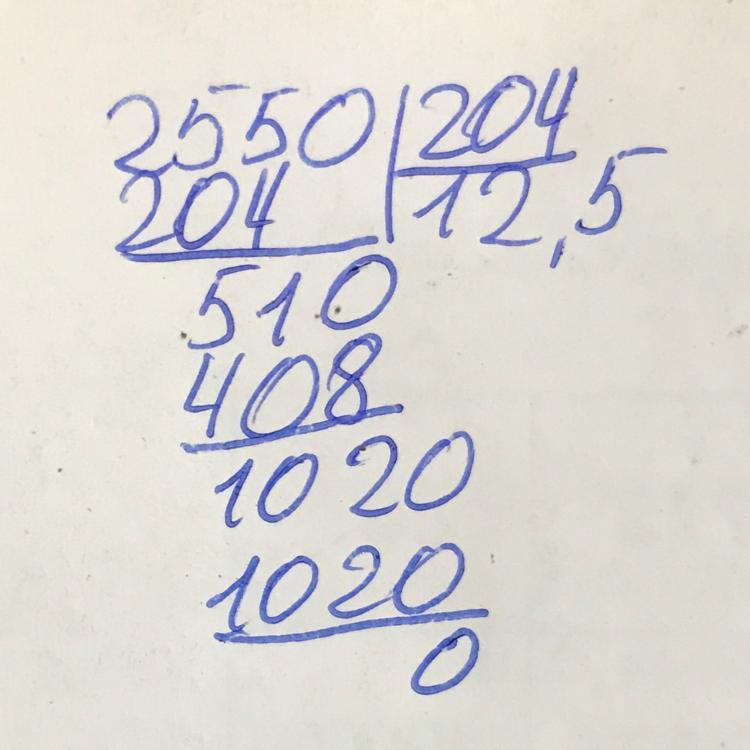 2550 204
204 12,5
510
408
1020
1020
0